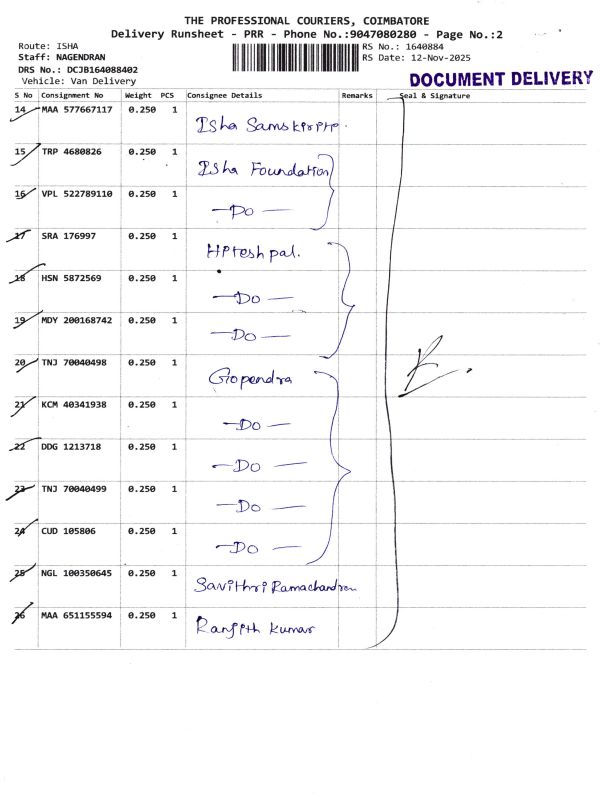 THE PROFESSIONAL COURIERS, COIMBATORE
Delivery Runsheet - PRR - Phone No.:9047080280 - Page No.:2
Route: ISHA
RS No.: 1640884
Staff: NAGENDRAN
RS Date: 12-Nov-2025
DRS No.: DCJB164088402
DOCUMENT DELIVERY
Vehicle: Van Delivery
S No Consignment No Weight PCS Consignee Details Remarks Seal & Signature
14 MAA 577667117 0.250 1
Isha Samskriti
15 TRP 4680826 0.250 1
Isha Foundation
16 VPL 522789110 0.250 1
—Do—
17 SRA 176997 0.250 1
Hitesh pal.
18 HSN 5872569 0.250 1
—Do—
19 MDY 200168742 0.250 1
—Do—
20 TNJ 70040498 0.250 1
Gopendra
21 KCM 40341938 0.250 1
—Do—
22 DDG 1213718 0.250 1
—Do—
23 TNJ 70040499 0.250 1
—Do—
24 CUD 105806 0.250 1
—Do—
25 NGL 100350645 0.250 1
Savithri Ramachandran
26 MAA 651155594 0.250 1
Ranjith Kumar